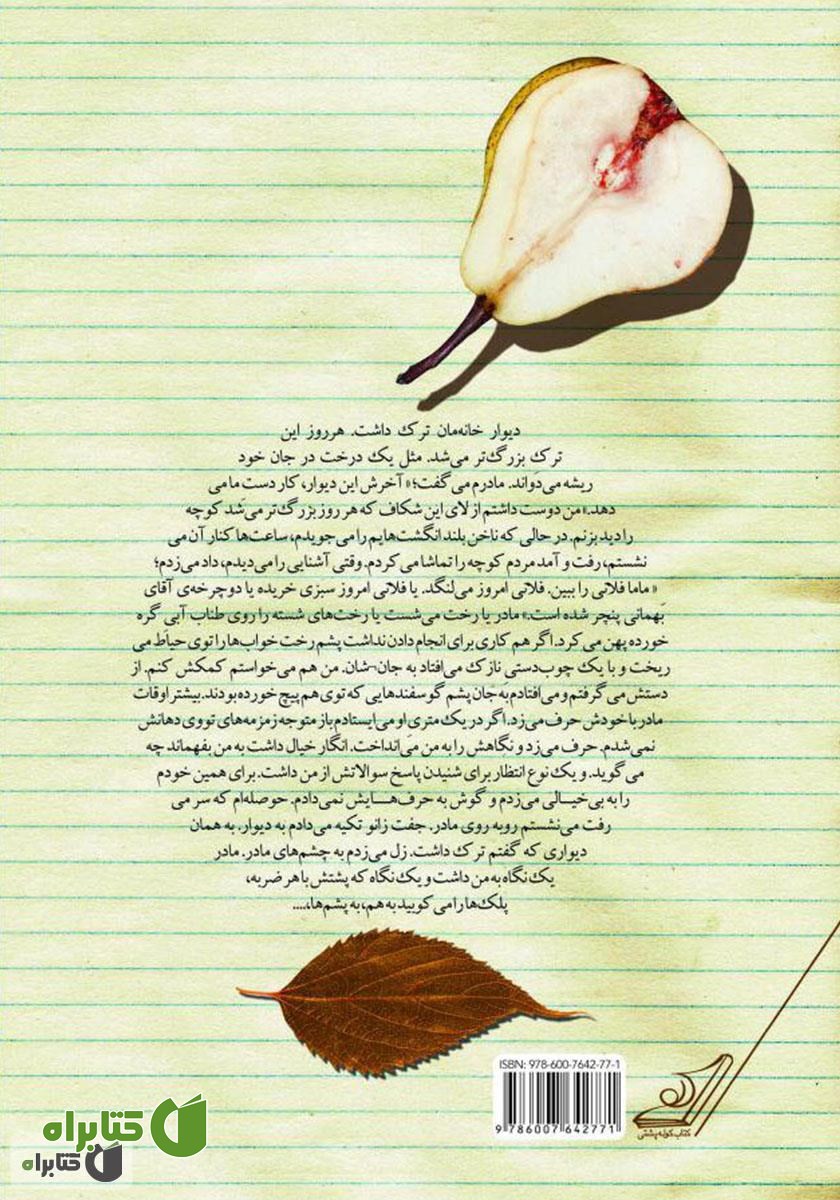 دیوار خانه‌مان ترک داشت. هرروز این
ترک بزرگ‌تر می‌شد. مثل یک درخت در جان خود
ریشه می‌دَواند. مادرم می‌گفت؛« آخرش این دیوار، کار دست ما می
دهد.» من دوست داشتم از لای این شکاف که هر روز بزرگ‌تر می‌شَد کوچه
را دید بزنم. در حالی که ناخن بلند انگشت‌هایم را می‌جویدم، ساعت‌ها کنار آن می
نشستم، رفت و آمد مردم کوچه را تماشا می‌کردم. وقتی آشنایی را می‌دیدم، داد می‌زدم؛
« ماما فلانی را ببین. فلانی امروز می‌لنگد. یا فلانی امروز سبزی خریده یا دوچرخه‌ی آقای
بَهمانی پنچر شده است.» مادر یا رخت می‌شست یا رخت‌های شسته را روی طناب آبی گره
خورده پهن می‌کرد. اگر هم کاری برای انجام دادن نداشت پشم رخت خواب‌ها را توی حیاط می
ریخت و با یک چوب‌دستی نازک می‌افتاد به جان¬شان. من هم می‌خواستم کمکش کنم. از
دستش می‌گرفتم و می‌افتادم به جان پشم گوسفندهایی که توی هم پیچ خورده بودند. بیشتر اوقات
مادر با خودش حرف می‌زد. اگر در یک متری او می‌ایستادم باز متوجه زمزمه‌های تووی دهانش
نمی‌شدم. حرف می‌زد و نگاهش را به من می‌انداخت. انگار خیال داشت به من بفهماند چه
می‌گوید. و یک نوع انتظار برای شنیدن پاسخ سوالاتش از من داشت. برای همین خودم
را به بی‌خیالی می‌زدم و گوش به حرف‌هایش نمی‌دادم. حوصله‌ام که سر می
رفت می‌نشستم روبه روی مادر. جفت زانو تکیه می‌دادم به دیوار. به همان
دیواری که گفتم ترک داشت. زل می‌زدم به چشم‌های مادر. مادر
یک نگاه به من داشت و یک نگاه که پشتش با هر ضربه،
پلک‌ها را می‌کوبید به هم، به پشم‌ها،....
ISBN: 978-600-7642-77-1
9 786007 642771
کتاب کوله پشتی
کتابراه
کتابراه